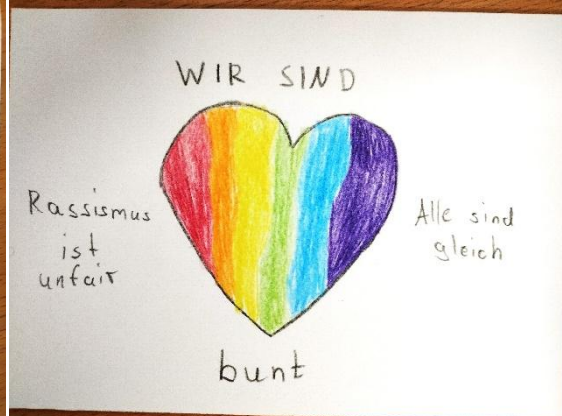 WIR SIND
Rassismus
ist
unfair
Alle sind
gleich
bunt